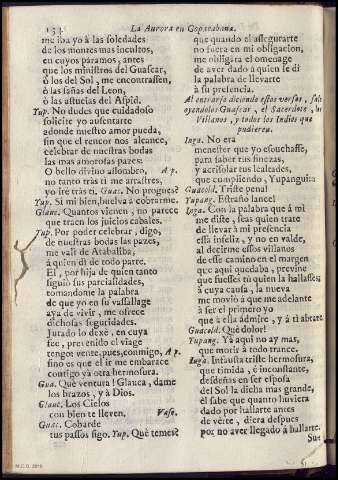 134
La Aurora en Copacabana.
me iba yo à las soledades
de los montes mas incultos,
en cuyos páramos, antes
que los ministros del Guascar,
ò los del Sol, me encontrassen,
ò las sañas del Leon,
ò las astucias del Aspid.
Yup. No dudes que cuidadoso
solicite yo ausentarte
adonde nuestro amor pueda,
sin que el rencor nos alcance,
celebrar de nuestras bodas
las mas amorosas pazes:
O bello divino assombro, Ap.
no tanto tràs ti me arrastres,
yo irè tràs ti. Guac. No prosigues?
Yup. Si mi bien, buelva à cobrarme.
Glauc. Quantos vienen, no parece
que traen los juicios cabales.
Yup. Por poder celebrar, digo,
de nuestras bodas las pazes,
me valì de Atabaliba,
à quien dì de todo parte.
El, por hija de quien tanto
siguiò sus parcialidades,
tomandome la palabra
de que yo en su vassallage
aya de vivir, me ofrece
dichosas seguridades.
Jurado lo dexè, en cuya
fee, prevenido el viage
tengo: vente, pues, conmigo, Ap.
sino es que el ir me embarace
contigo yà otra hermosura.
Gua. Què ventura! Glauca, dame
los brazos, y à Dios.
Glauc. Los Cielos
con bien te lleven. Vase.
Guac. Cobarde
tus passos sigo. Yup. Què temes?
que quando el assegurarte
no fuera en mi obligacion,
me obligàra el omenage
de aver dado à quien le dì
la palabra de llevarte
à su presencia.
Al entrarse diciendo estos versos, salen
oyendolos Guascar, el Sacerdote, los
Villanos, y todos los Indios que
pudieren.
Inga. No era
menester que yo escuchasse,
para saber tus finezas,
y acrisolar tus lealtades,
que cumpliendo, Yupanguì
Guacold. Triste pena!
Yupang. Estraño lance!
Inga. Con la palabra que à mì
me diste, seas quien trate
de llevar à mi presencia
essa infeliz, y no en valde,
al decirme essos villanos
de esse camino en el margen
que aqui quedaba, previne
que fuesses tù quien la hallasses;
à cuya causa, la nueva
me moviò à que me adelante
à ser el primero yo
que à ella admire, y à tì abrace.
Guacold. Què dolor!
Yupang. Yà aqui no ay mas,
que morir à todo trance.
Inga. Infausta triste hermosura,
que timida, è inconstante,
desdeñas en ser esposa
del Sol la dicha mas grande,
èl sabe que quanto huviera
dado por hallarte antes
de vèrte, diera despues
por no aver llegado à hallarte.
Sue